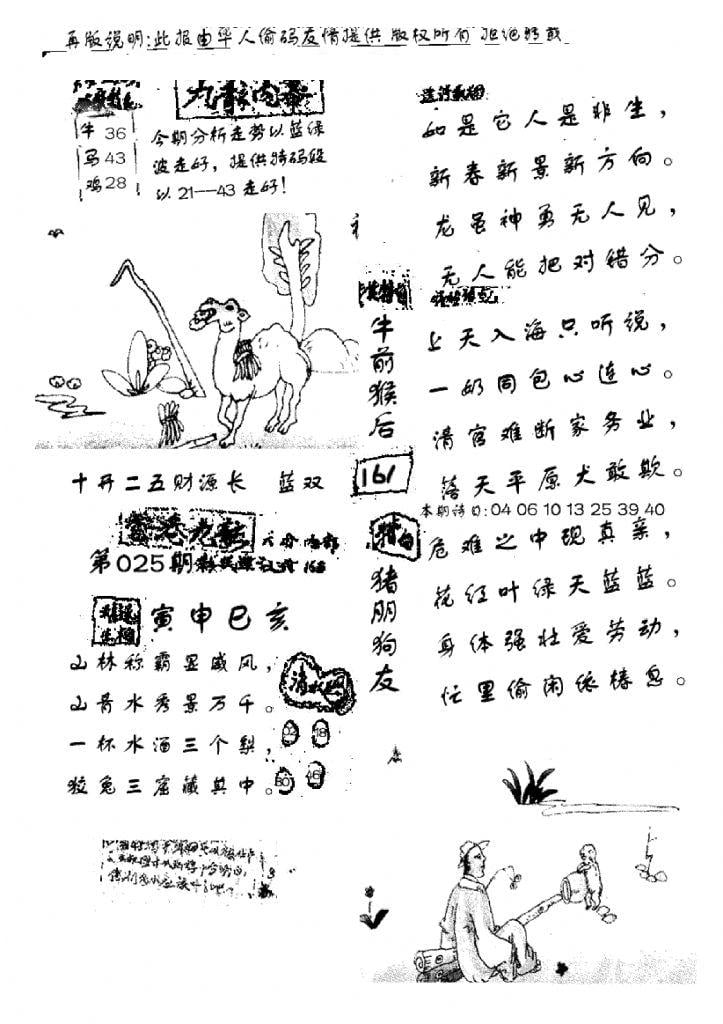 再版说明:此报由华人偷码友情提供 版权所有 拒绝转载
九龍内幕
牛 36
马 43
鸡 28
今期分析走势以蓝绿
波走好，提供特码段
以 21—43 走好!
如是它人是非生，
新春新景新方向。
龙虽神勇无人见，
无人能把对错分。
牛前猴后
上天入海只听说，
一奶同包心连心。
清官难断家务业，
落天平原犬敢欺。
161
十开二五财源长 蓝双
本期诗曰:04 06 10 13 25 39 40
第025期
猪朋狗友
危难之中现真亲，
花红叶绿天蓝蓝。
身体强壮爱劳动，
忙里偷闲依椿息。
寅申巳亥
山林称霸显威风，
山青水秀景万千。
一杯水酒三个梨，
狡兔三窟藏其中。
02 18
30 46